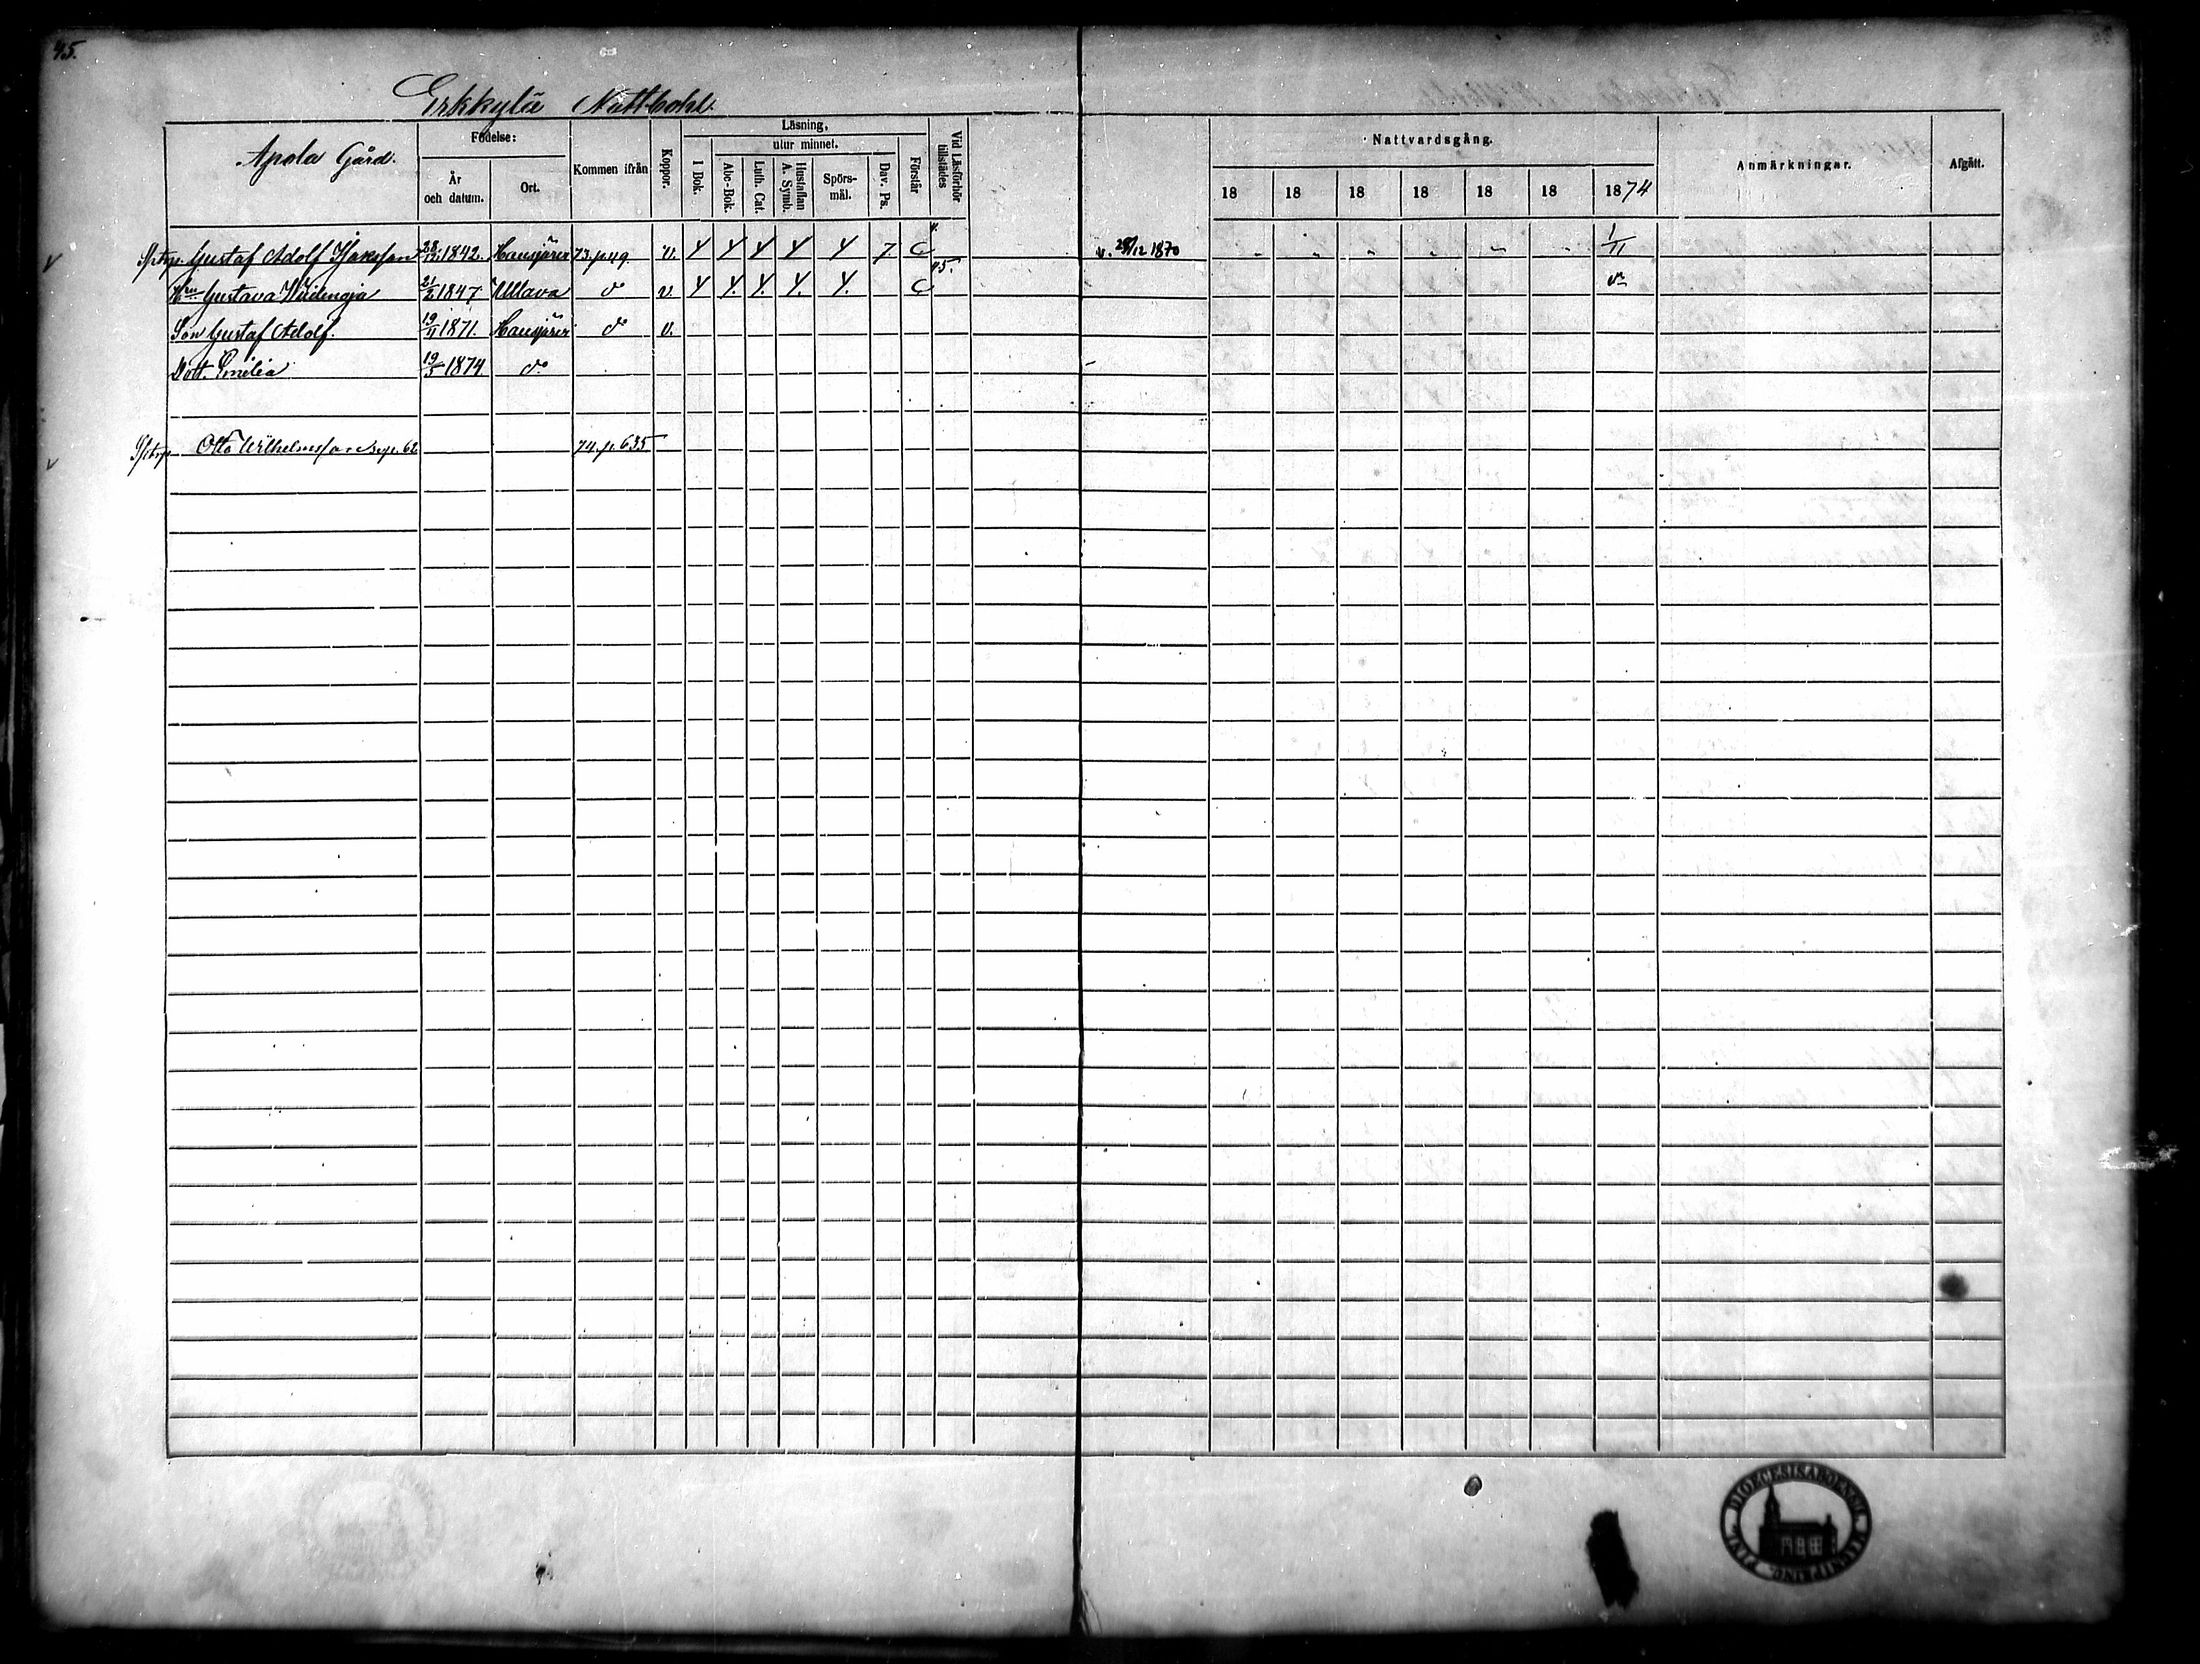 45.
Erkkylä Nattbohl.
Apola Gård.
Födelse:
År och datum.
Ort.
Kommen ifrån
Koppor.
Läsning,
I Bok.
utur minnet.
Abc-Bok.
Luth. Cat.
Hustaflan A. Symb.
Spörs-mål.
Dav. Ps.
Förstår
Vid Läsförhör tillstädes
Nattvardsgång.
18 18 18 18 18 18 1874
Anmärkningar.
Afgått.
Gustaf Adolf 1842 Hausjärvi 73. p. v. 7. C v. 28/12 1870 1/11
Hru Gustava 21/2 1847 Ullava do v. C 45. do
Son Gustaf Adolf. 19/11 1871. Hausjärvi do v.
Dott. Emilia 19/5 1874 do
Otto Wilhelmsson p. 62 74. p. 635